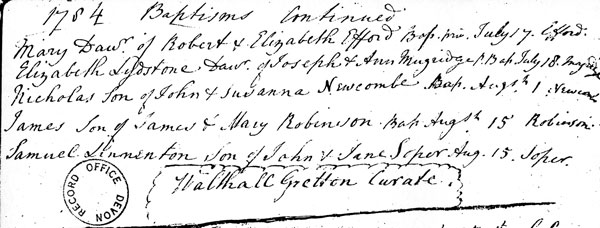 1784 Baptisms Continued
Mary Dawr. of Robert & Elizabeth Efford Bap. priv. July 17. Efford.
Elizabeth Lydstone Dawr. of Joseph & Ann Mugridge Bap. July 18. Mugridge
Nicholas Son of John & Susanna Newcombe Bap. Augst. 1 Newcombe
James Son of James & Mary Robinson Bap. Augst. 15 Robinson.
Samuel Linnenton Son of John & Jane Soper Aug. 15. Soper.
Walthall Gretton Curate.
DEVON RECORD OFFICE